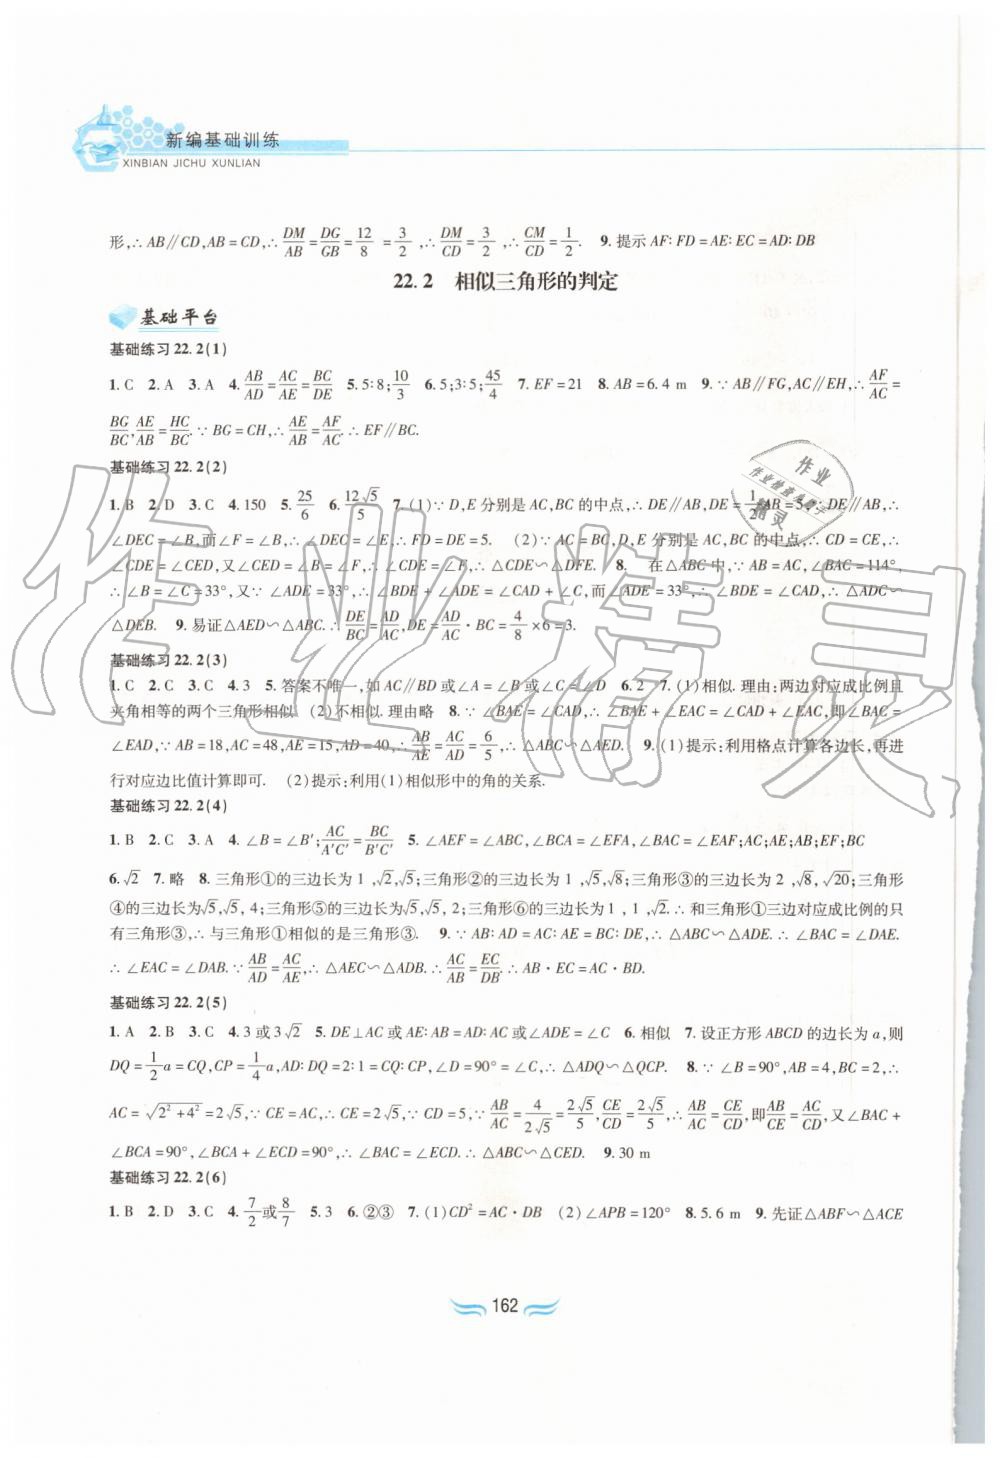 新编基础训练
XINBIAN JICHU XUNLIAN
形,∴AB∥CD,AB=CD,∴DM/AB=DG/GB=12/8=3/2,∴DM/CD=3/2,∴CM/CD=1/2. 9.提示 AF∶FD=AE∶EC=AD∶DB
22.2 相似三角形的判定
基础平台
基础练习22.2(1)
1.C 2.A 3.A 4.AB/AD=AC/AE=BC/DE 5.5∶8;10/3 6.5;3∶5;45/4 7.EF=21 8.AB=6.4 m 9.∵AB∥FG,AC∥EH,∴AF/AC=
BG/BC,AE/AB=HC/BC.∵BG=CH,∴AE/AB=AF/AC.∴EF∥BC.
基础练习22.2(2)
1.B 2.D 3.C 4.150 5.25/6 6.12√5/5 7.(1)∵D,E分别是AC,BC的中点,∴DE∥AB,DE=1/2AB=5.∵DE∥AB,∴
∠DEC=∠B,而∠F=∠B,∴∠DEC=∠E,∴FD=DE=5. (2)∵AC=BC,D,E分别是AC,BC的中点,∴CD=CE,∴
∠CDE=∠CED,又∠CED=∠B=∠F,∴∠CDE=∠F,∴△CDE∽△DFE. 8. 在△ABC中,∵AB=AC,∠BAC=114°,
∴∠B=∠C=33°,又∵∠ADE+∠BDE=∠CAD+∠C,而∠ADE=33°,∴∠BDE=∠CAD,∴△ADC∽
△DEB. 9.易证△AED∽△ABC.∴DE/BC=AD/AC,DE=AD/AC·BC=4/8×6=3.
基础练习22.2(3)
1.C 2.C 3.C 4.3 5.答案不唯一,如AC∥BD或∠A=∠B或∠C=∠D 6.2 7.(1)相似.理由:两边对应成比例且
夹角相等的两个三角形相似 (2)不相似.理由略 8.∵∠BAE=∠CAD,∴∠BAE+∠EAC=∠CAD+∠EAC,即∠BAC=
∠EAD,∵AB=18,AC=48,AE=15,AD=40,∴AB/AE=AC/AD=6/5,∴△ABC∽△AED. 9.(1)提示:利用格点计算各边长,再进
行对应边比值计算即可. (2)提示:利用(1)相似形中的角的关系.
基础练习22.2(4)
1.B 2.C 3.A 4.∠B=∠B′;AC/A′C′=BC/B′C′ 5.∠AEF=∠ABC,∠BCA=∠EFA,∠BAC=∠EAF;AC;AE;AB;EF;BC
6.√2 7.略 8.三角形①的三边长为1,√2,√5;三角形②的三边长为1,√5,√8;三角形③的三边长为2,√8,√20;三角形
④的三边长为√5,√5,4;三角形⑤的三边长为√5,√5,2;三角形⑥的三边长为1,1,√2.∴和三角形①三边对应成比例的只
有三角形③,∴与三角形①相似的是三角形③. 9.∵AB∶AD=AC∶AE=BC∶DE,∴△ABC∽△ADE.∴∠BAC=∠DAE.
∴∠EAC=∠DAB.∵AB/AD=AC/AE,∴△AEC∽△ADB.∴AC/AB=EC/DB.∴AB·EC=AC·BD.
基础练习22.2(5)
1.A 2.B 3.C 4.3或3√2 5.DE⊥AC或AE∶AB=AD∶AC或∠ADE=∠C 6.相似 7.设正方形ABCD的边长为a,则
DQ=1/2a=CQ,CP=1/4a,AD∶DQ=2∶1=CQ∶CP,∠D=90°=∠C,∴△ADQ∽△QCP. 8.∵∠B=90°,AB=4,BC=2,∴
AC=√2²+4²=2√5,∵CE=AC,∴CE=2√5,∵CD=5,∵AB/AC=4/2√5=2√5/5,CE/CD=2√5/5,∴AB/AC=CE/CD,即AB/CE=AC/CD,又∠BAC+
∠BCA=90°,∠BCA+∠ECD=90°,∴∠BAC=∠ECD.∴△ABC∽△CED. 9.30 m
基础练习22.2(6)
1.B 2.D 3.C 4.7/2或8/7 5.3 6.②③ 7.(1)CD²=AC·DB (2)∠APB=120° 8.5.6 m 9.先证△ABF∽△ACE
162
作业精灵